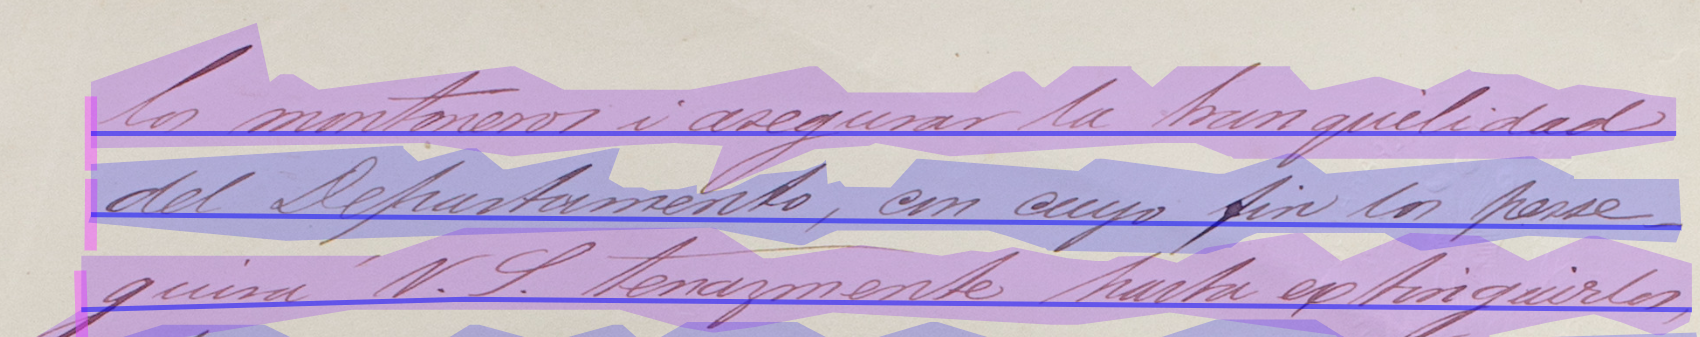 los montoneros i asegurar la tranquilidad
del Departamento, con cuyo fin los perse_
guirá V. S. tenazmente hasta extinguirlos,